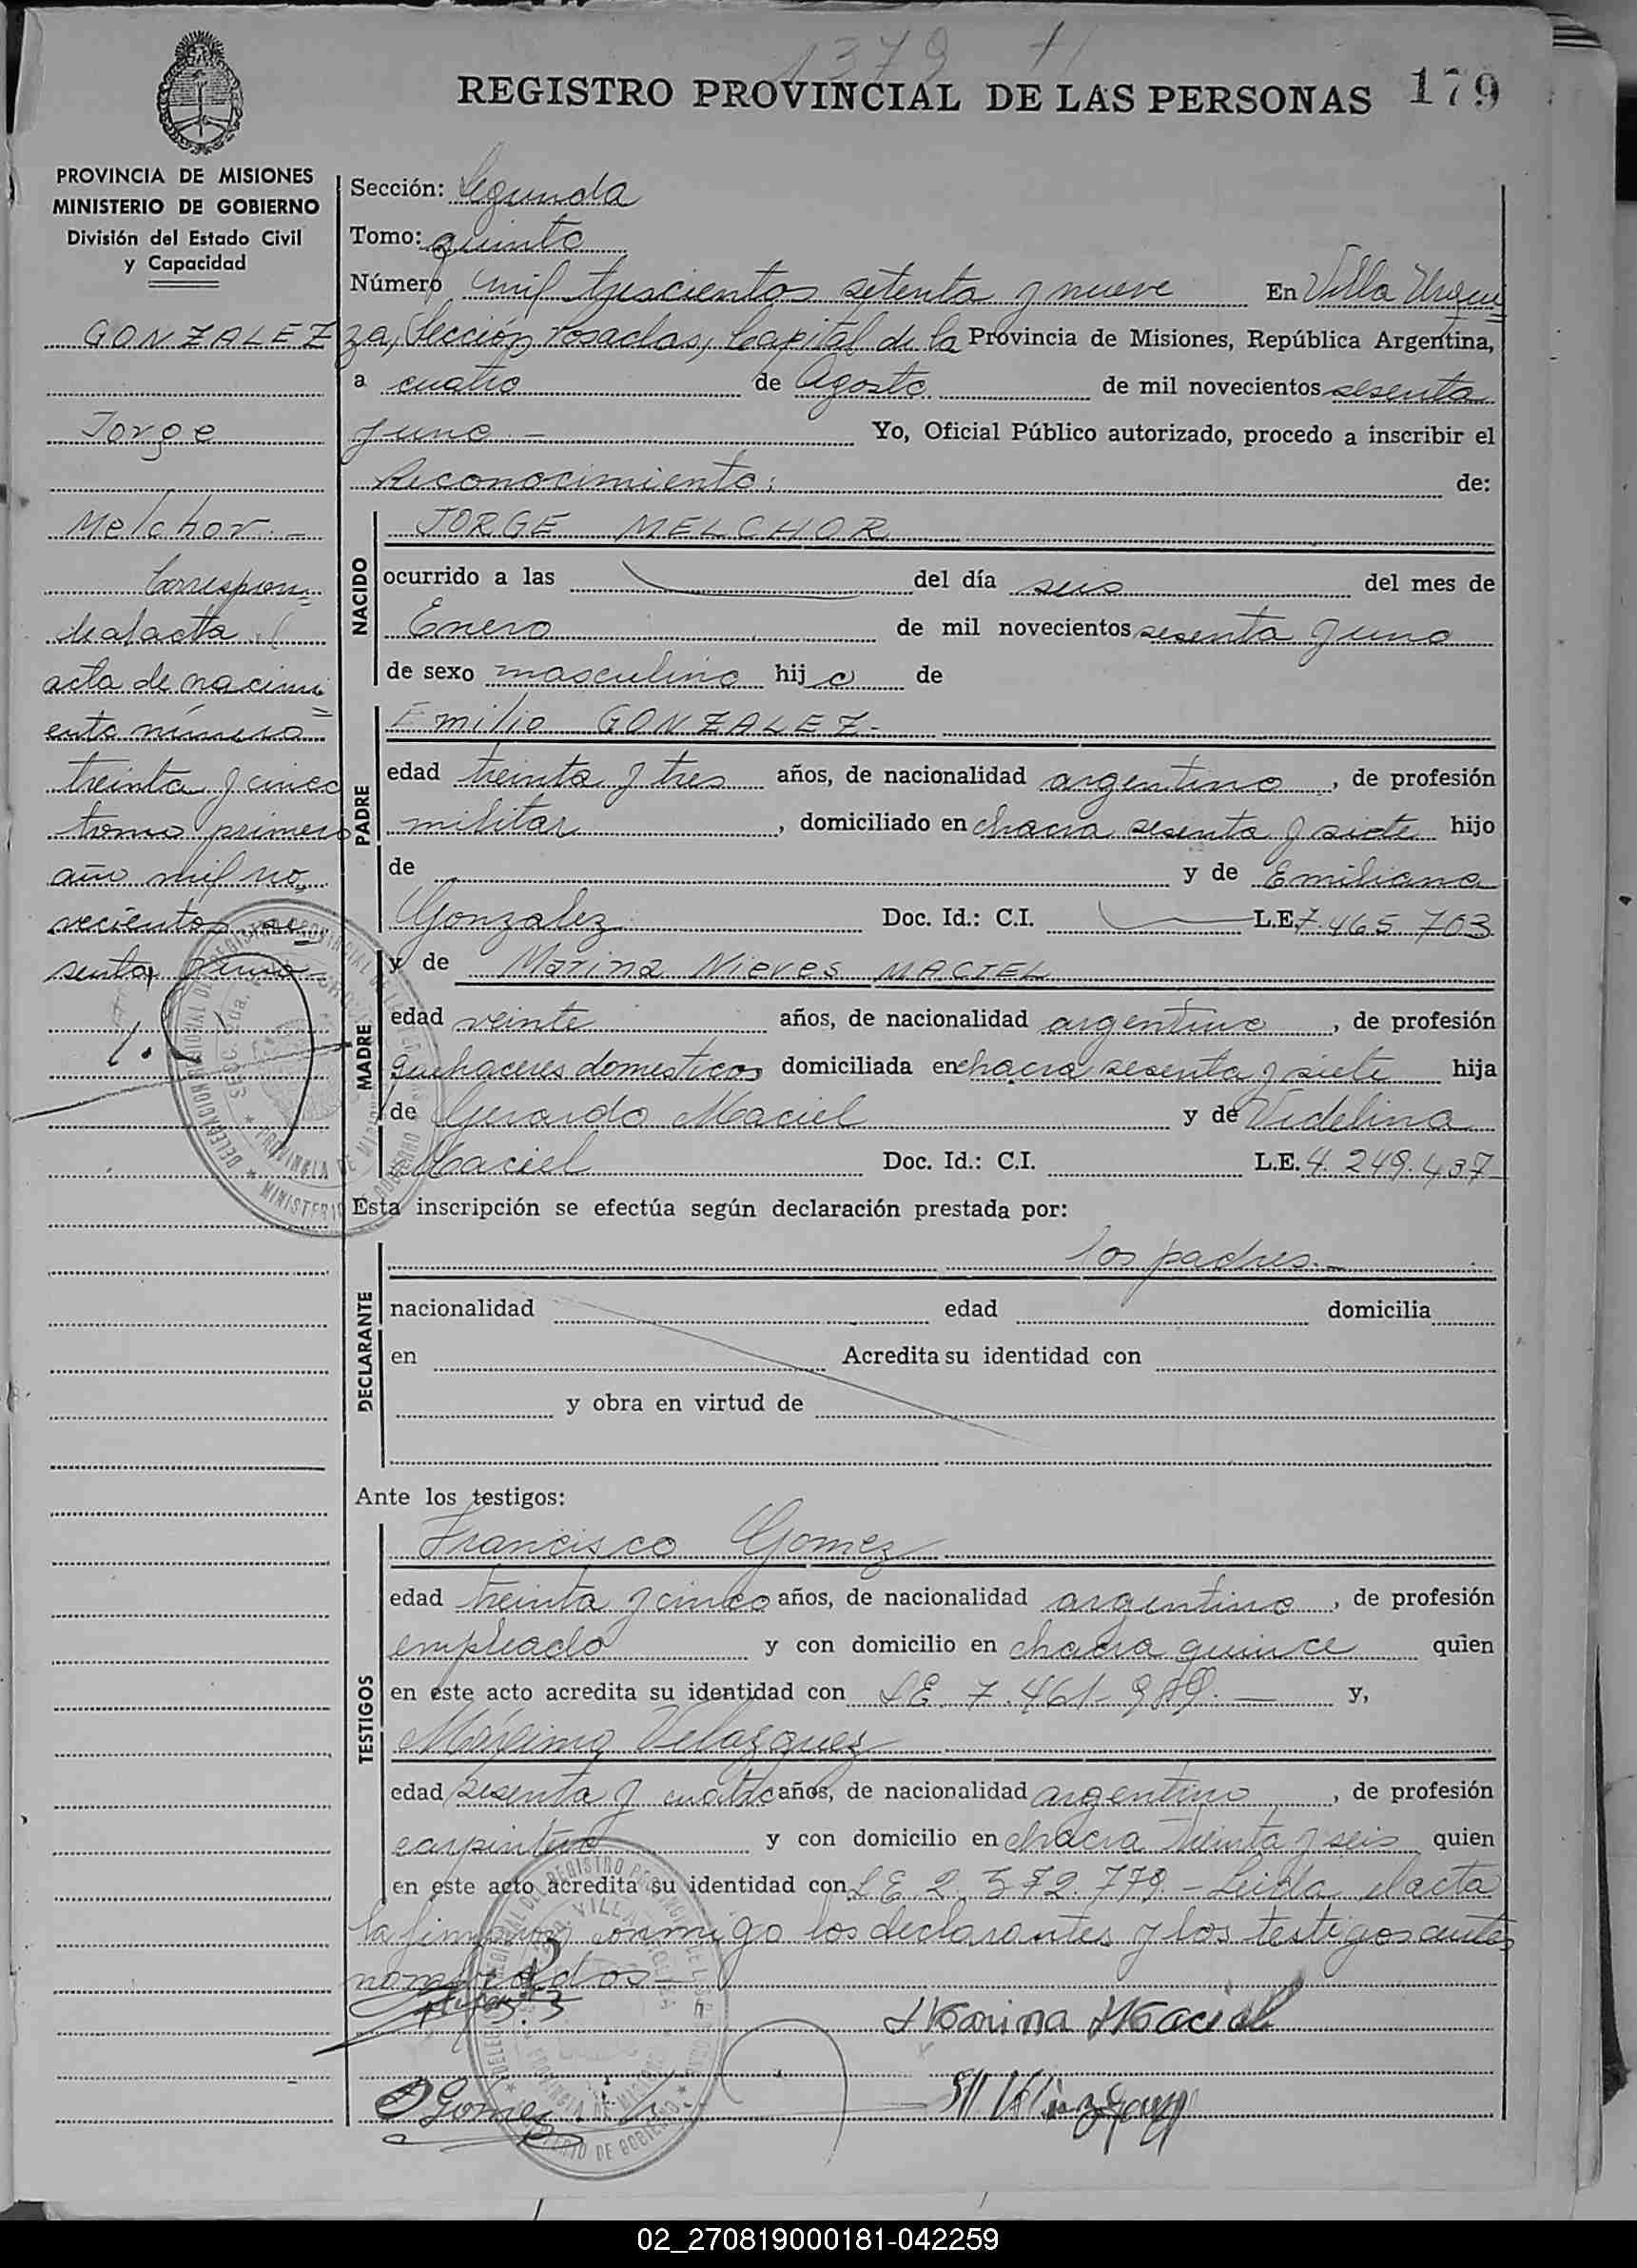 1379
REGISTRO PROVINCIAL DE LAS PERSONAS 179
PROVINCIA DE MISIONES
MINISTERIO DE GOBIERNO
División del Estado Civil
y Capacidad
GONZALEZ
Jorge
Melchor.-
Correspon=
acta de nacimi=
ento número
treinta y cinco
tomo primero
año mil no
vecientos se
senta y uno-
Sección: Segunda
Tomo: quinto
Número mil trescientos setenta y nueve En Villa Urqui=
za, Sección Posadas, Capital de la Provincia de Misiones, República Argentina,
a cuatro de Agosto de mil novecientos sesenta
y uno.- Yo, Oficial Público autorizado, procedo a inscribir el
Reconocimiento: de:
NACIDO
JORGE MELCHOR
ocurrido a las del día seis del mes de
Enero de mil novecientos sesenta y uno
de sexo masculino hijo de
PADRE
Emilio GONZALEZ-
edad treinta y tres años, de nacionalidad argentino, de profesión
militar, domiciliado en chacra sesenta y siete hijo
de y de Emiliana
Gonzalez Doc. Id.: C.I. L.E. 7.465 703
MADRE
y de Marina Nieves MACIEL
edad veinte años, de nacionalidad argentina, de profesión
quehaceres domesticos domiciliada en chacra sesenta y siete hija
de Gerardo Maciel y de Videlina
Maciel Doc. Id.: C.I. L.E. 4.249.437
Esta inscripción se efectúa según declaración prestada por:
DECLARANTE
los padres.-
nacionalidad edad domicilia
en Acredita su identidad con
y obra en virtud de
Ante los testigos:
TESTIGOS
Francisco Gomez
edad treinta y cinco años, de nacionalidad argentino, de profesión
empleado y con domicilio en chacra quince quien
en este acto acredita su identidad con LE. 7.461.989.- y,
Máximo Velazquez
edad sesenta y cuatro años, de nacionalidad argentino, de profesión
carpintero y con domicilio en chacra treinta y seis quien
en este acto acredita su identidad con LE 2.372.779.- Leida el acta
la firman conmigo los declarantes y los testigos antes
nombrados-
Marina Maciel
Gomez
02_270819000181-042259